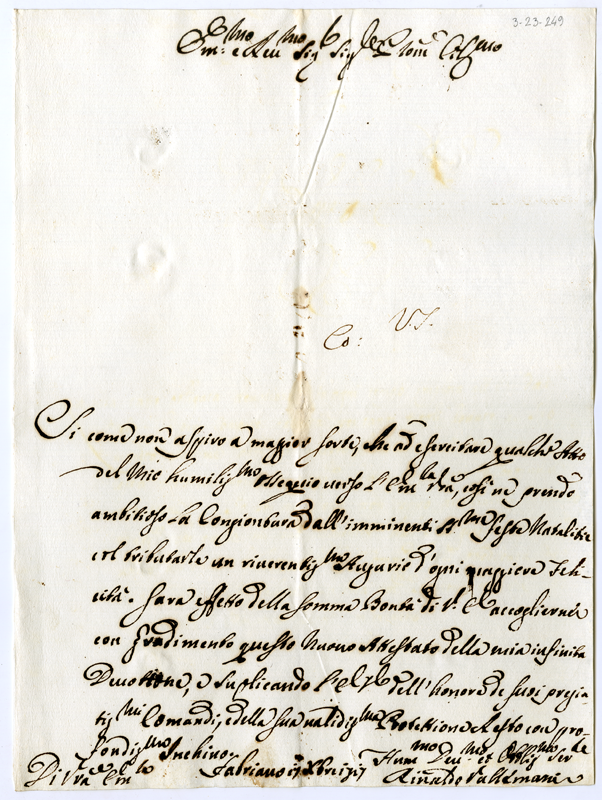 3-23-249
Em:mo e Reu:mo Sig:r Sig:r Pron:e Col:mo
Co: V.S.
Si come non aspiro a maggior sorte, che ad esercitare qualche Atto
del Mio humiliss:mo ossequio verso l'Em:za Vra, così ne prendo
ambitioso la Congiontura dall'imminenti SS:me feste Natalitie
col tributarle un riverentiss:mo Augurio d'ogni maggiore Feli-
cità. Sarà effetto della somma Bontà di V. E. accogliere
con gradimento questo Nuovo Attestato della mia infinita
Devotione, e suplicando l'E.V. dell'honore de suoi pregia-
tiss:mi Comandi, e della sua validiss:ma Protettione Resto con pro-
fondiss:mo Inchino.
Di Vra Em:za Fabriano Xbre
Hum:mo Deu:mo et Oblig:mo Ser:re
Rinaldo